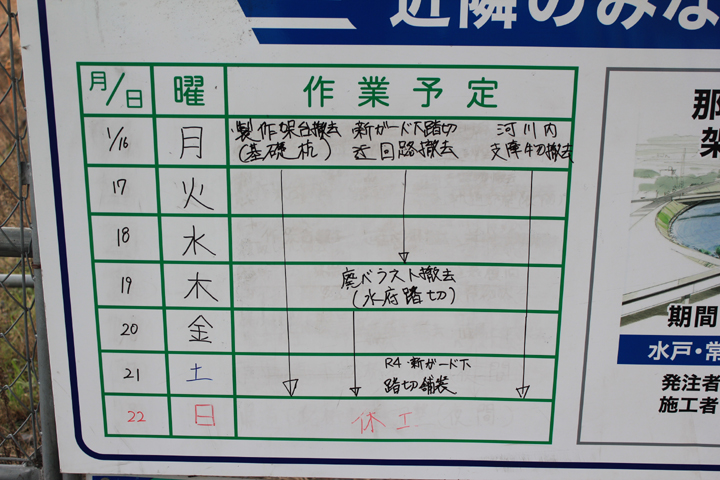 近隣のみな
月/日 曜 作業予定
1/16 月 製作架台撤去 新ガード下踏切 河川内
(基礎杭) 迂回路撤去 支障物撤去
17 火
18 水
19 木 廃バラスト撤去
(水府踏切)
20 金
21 土 R4.新ガード下
踏切舗装
22 日 休工
那
架
期間
水戸・常
発注者
施工者